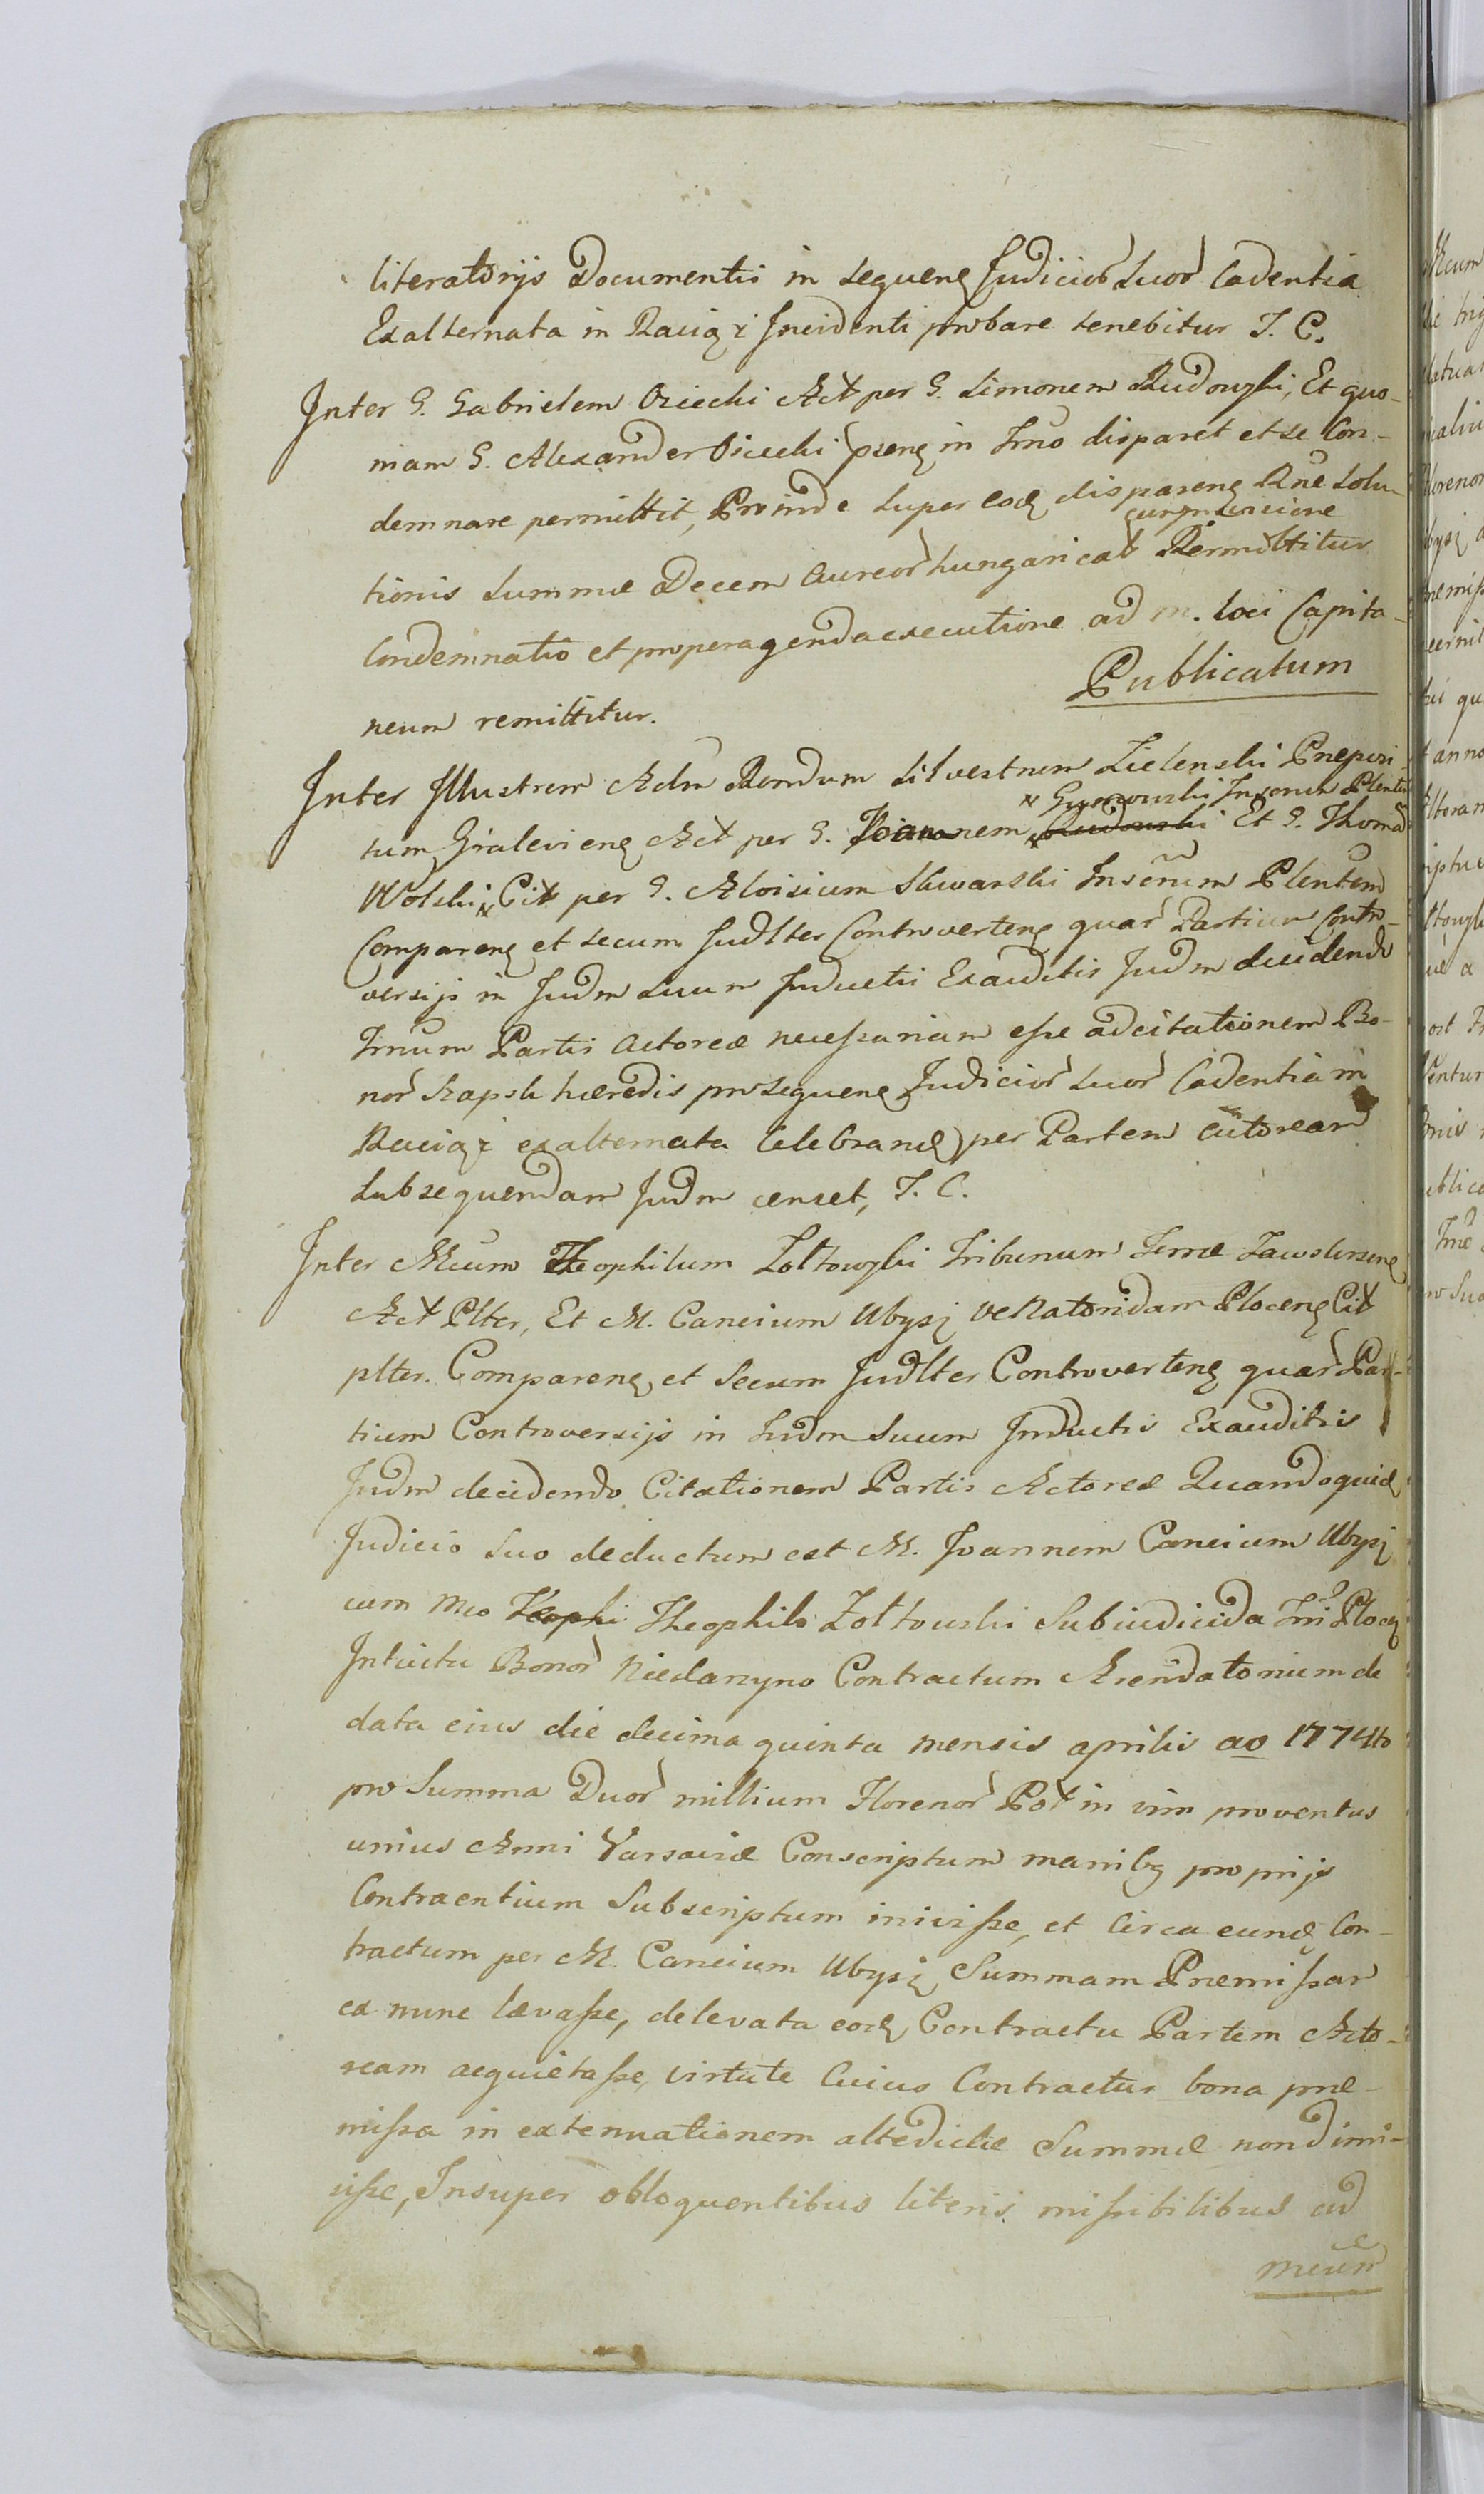 literatorijs Documentis in sequenꝫ Judicior̃ Suor̃ Cadentia
Exalternata in Raciąż Incidenti probare tenebitur T. C.
Inter G. Gabrielem Osiecki Act per G. Simonem Rudowski, Et quo-
niam G. Alexander Osiecki pñenꝫ in Tmo disparet et se Con-
demnare permittit, Proinde super eodꝫ disparenꝫ Rñe Solu-
cum provisione
tionis Summæ Decem Aureor̃ hungaricał Permittitur
Condemnatio et pro peragenda executione ad m. loci Capita-
neum remittitur.
Publicatum
Inter Illustrem Adm Rondum Silvestrum Zielenski Præposi
x Gumowski Inserum Plentem
tum Gralevienꝫ Act per G. Joannem x Rudowski Et G. Thomam
Wolski x Cit per G. Aloisium Sliwarski Inserũm Plentem
Comparenꝫ et secum Judlter Controvertenꝫ quar̃ Partium Contro-
versijs in Judm Suum Inductis Exauditis Judm decidendo
Tmum Partis Actoreæ necessariam esse adcitationem Bo-
nor̃ Szapsk hæredis pro sequenꝫ Judicior̃ Suor̃ Cadentia in
Raciąż exalternata Celebrandꝫ per Partem Actoream
Subsequendam Judm censet, T. C.
Inter Mcum Theophilum Zoltowski Tribunum Terræ Zawskrzenꝫ
Act Plter, Et M. Cancium Ubysz Venatoridam Plocenꝫ Cit
plter. Comparenꝫ et Secum Judlter Controvertenꝫ quar̃ Par-
tium Controversijs in Judm Suum Inductis Exauditis
Judm decidendo Citationem Partis Actoreæ Quandoquidꝫ
Judicio Suo deductum est M. Joannem Cancium Ubysz
cum Mco Teophi Theophilo Zoltowski Subiudicida Tri Plocꝫ
Intuitu Bonor̃ Niedarzyno Contractum Arendatorium de
data eius die decima quinta mensis aprilis ao 1774to
pro Summa Duor̃ millium Florenor̃ Poł in vim proventus
unius Anni Varsaviæ Conscriptum manibꝫ proprijs
Contraentium Subscriptum inivisse, et Circa eundꝫ Con-
tractum per M. Cancium Ubysz Summam Præmissam
ex nunc lævasse, de levata eodꝫ Contractu Partem Acto-
ream acquietasse, virtute Cuius Contractus bona præ-
missa in extenuationem altedictæ Summæ non dimi-
sisse, Insuper obloquentibus literis missibilibus ad
mcum